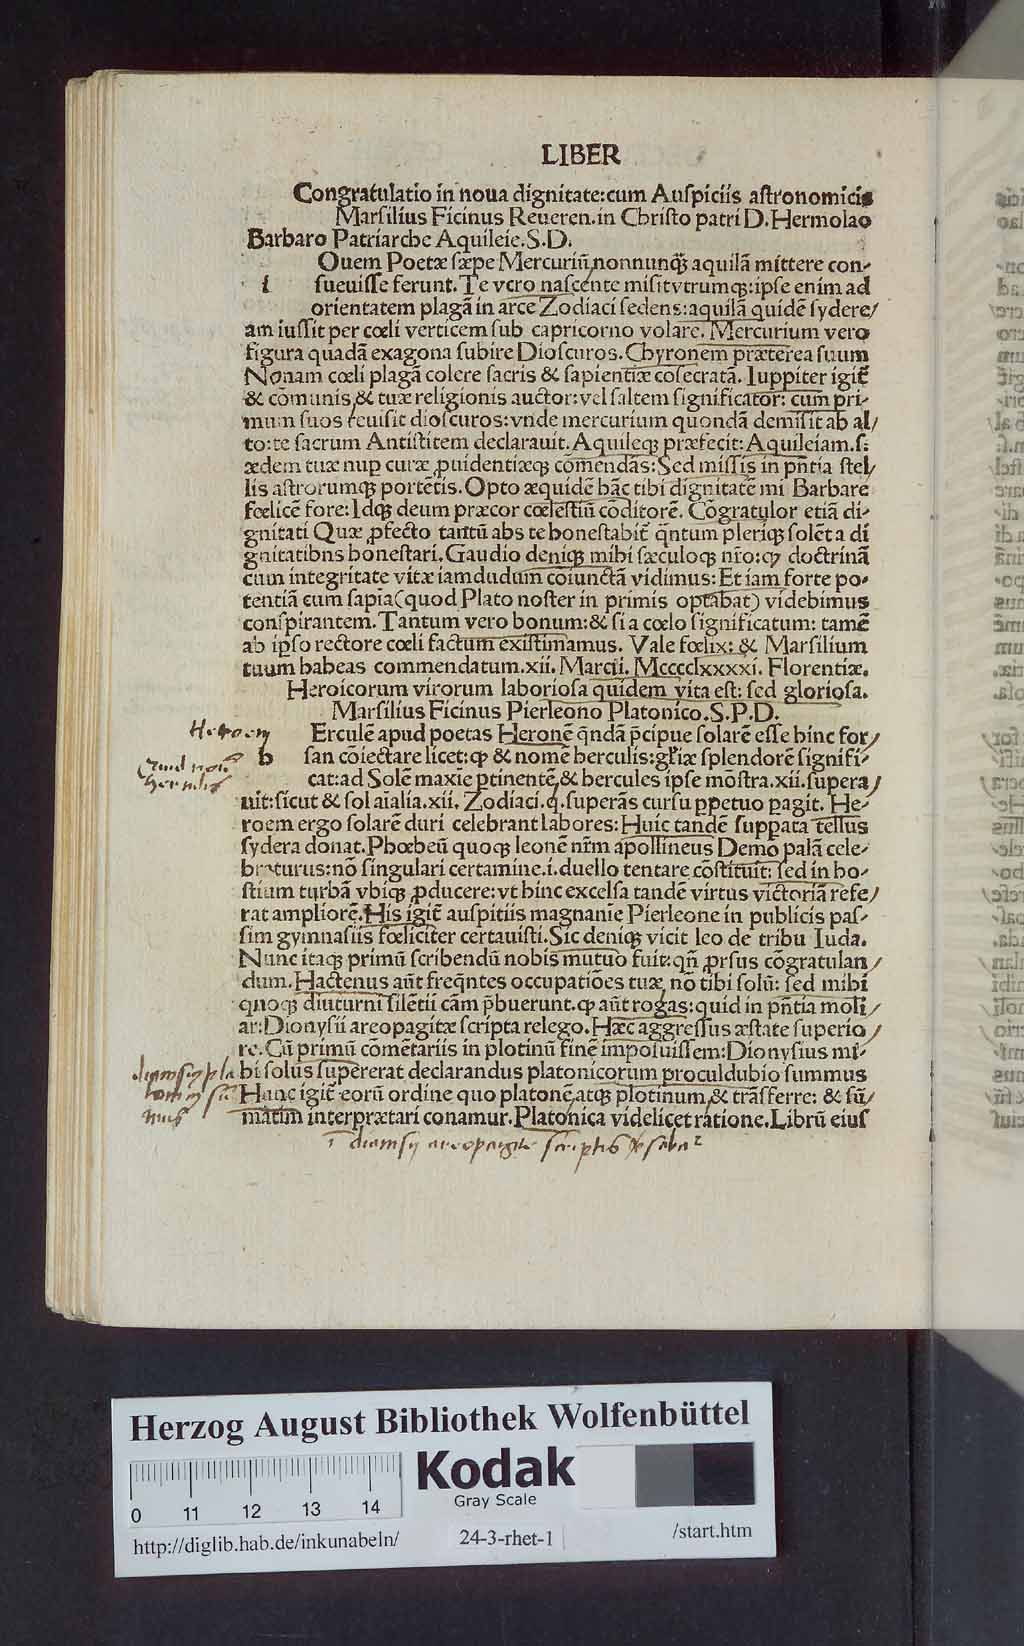 LIBER
Congratulatio in noua dignitate:cum Auſpiciis aſtronomicis
Marſilius Ficinus Reueren.in Chriſto patri D. Hermolao
Barbaro Patriarche Aquileie.S.D.
Ouem Poetæ ſæpe Mercuriũ,nonnunq̃ aquilã mittere con-
i ſueuiſſe ferunt.Te vero naſcente miſit vtrumq;:ipſe enim ad
orientatem plagã in arce Zodiaci ſedens:aquilã quidẽ ſydere/
am iuſſit per cœli verticem ſub capricorno volare. Mercurium vero
figura quadã exagona ſubire Dioſcuros.Chyronem præterea ſuum
Nonam cœli plagã colere ſacris & ſapientiæ cõſecratã. Iuppiter igit̃
& cõmunis,& tuæ religionis auctor:vel ſaltem ſignificator: cum pri-
mum ſuos reuiſit dioſcuros:vnde mercurium quondã demiſit ab al/
to:te ſacrum Antiſtitem declarauit.Aquileq; præfecit:Aquileiam.ſ:
ædem tuæ nup curæ ꝓuidentiæq; cõmendãs:Sed miſſis in pñtia ſtel/
lis aſtrorumq; portẽtis.Opto æquidẽ hãc tibi dignitatẽ mi Barbare
fœlicẽ fore:Idq; deum præcor cœleſtiũ cõditorẽ. Cõgratulor etiã di-
gnitati Quæ ꝓfecto tantũ abs te honeſtabit̃ q̃ntum pleriq; ſolẽt a di
gnitatibns honeſtari.Gaudio deniq; mihi ſæculoq; nr̃o:ꝙ doctrinã
cum integritate vitæ iamdudum coiunctã vidimus:Et iam forte po-
tentiã cum ſapia(quod Plato noſter in primis optabat) videbimus
conſpirantem.Tantum vero bonum:& ſi a cœlo ſignificatum: tamẽ
ab ipſo rectore cœli factum exiſtimamus. Vale fœlix: & Marſilium
tuum habeas commendatum.xii. Marcii. Mccccllxxxxi. Florentiæ.
Heroicorum virorum laborioſa quidem vita eſt: ſed glorioſa.
Marſilius Ficinus Pierleono Platonico.S.P.D.
Erculẽ apud poetas Heronẽ q̃ndã p̃cipue ſolarẽ eſſe hinc for/
h ſan cõiectare licet:ꝙ & nomẽ herculis:gl̃iæ ſplendorẽ ſignifi-
cat:ad Solẽ maxie ꝑtinentẽ,& hercules ipſe mõſtra.xii.ſupera/
uit:ſicut & ſol aĩalia.xii. Zodiaci.q̃.ſuperãs curſu ꝑpetuo ꝑagit. He-
roem ergo ſolarẽ duri celebrant labores:Huic tandẽ ſuꝑata tellus
ſydera donat.Phœbeũ quoq; leonẽ nr̃m apollineus Demõ palã cele-
braturus:nõ ſingulari certamine.i.duello tentare cõſtituit: ſed in ho-
ſtium turbã vbiq; ꝓducere:vt hinc excelſa tandẽ virtus victoriã refe/
rat ampliorẽ.His igit̃ auſpitiis magnanie Pierleone in publicis paſ-
ſim gymnaſiis fœliciter certauiſti.Sic deniq; vicit leo de tribu Iuda.
Nunc itaq; primũ ſcribendũ nobis mutuo fuit:qñ ꝓrſus cõgratulan/
dum.Hactenus aũt freq̃ntes occupatiões tuæ, nõ tibi ſolũ: ſed mihi
qnoq; diuturni ſilẽtii cãm p̃buerunt.ꝙ aũt rogas:quid in pñtia moli/
ar:Dionyſii areopagitæ ſcripta relego.Hæc aggreſſus æſtate ſuperio/
re.Cũ primũ cõmẽtariis in plotinũ finẽ impoſuiſſem:Dionyſius mi-
hi ſolus ſupererat declarandus platonicorum proculdubio ſummus
Hunc igit̃ eorũ ordine quo platonẽ,atq; plotinum,& trãſferre: & ſũ/
matim interprætari conamur.Platonica videlicet ratione.Librũ eiuſ
Heroem
herculis
Herzog August Bibliothek Wolfenbüttel
Kodak
Gray Scale
0 11 12 13 14
http://diglib.hab.de/inkunabeln/ 24-3-rhet-1 /start.htm